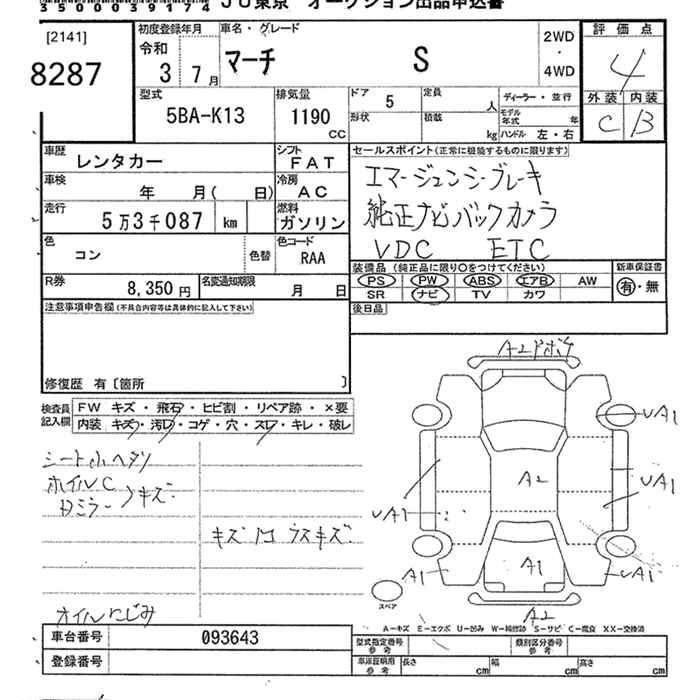 35000039174 JU東京 オークション出品申込書
[2141]
8287
初度登録年月
令和
3 7月
車名・グレード
マーチ S
2WD
・
4WD
評価点
4
外装 内装
C B
型式
5BA-K13
排気量
1190
CC
ドア 5
形状
定員 人
積載 kg
ディーラー・並行
モデル年式 年
ハンドル 左・右
車歴
レンタカー
シフト
FAT
車検
年 月( 日)
冷房
AC
走行
5万3千087 km
燃料
ガソリン
色
コン
色替
色コード
RAA
R券
8,350円
名変通知期限
月 日
セールスポイント(正常に機能するものに限ります)
エマージェンシーブレーキ
純正ナビバックカメラ
VDC ETC
装備品(純正品に限り○をつけてください)
PS PW ABS エアB AW
SR ナビ TV カワ
新車保証書
有・無
後日品
注意事項申告欄(不具合内容等は具体的に記入して下さい)
修復歴 有〔箇所 〕
検査員記入欄
FW キズ・飛石・ヒビ割・リペア跡・×要
内装 キズ・汚レ・コゲ・穴・スレ・キレ・破レ
シート小ヘタリ
ホイルC
Dミラー 〉キズ
キズ 凹 ラスキズ
オイルにじみ
A2ドボケ
UA1
A2
UA1
UA1
A1
A1
UA1
スペア
A2
A－キズ E－エクボ U－凹み W－補修跡 S－サビ C－腐食 XX－交換済
車台番号
093643
登録番号
型式指定番号
参考
類別区分番号
参考
車庫証明用
参考
長さ cm
幅 cm
高さ cm